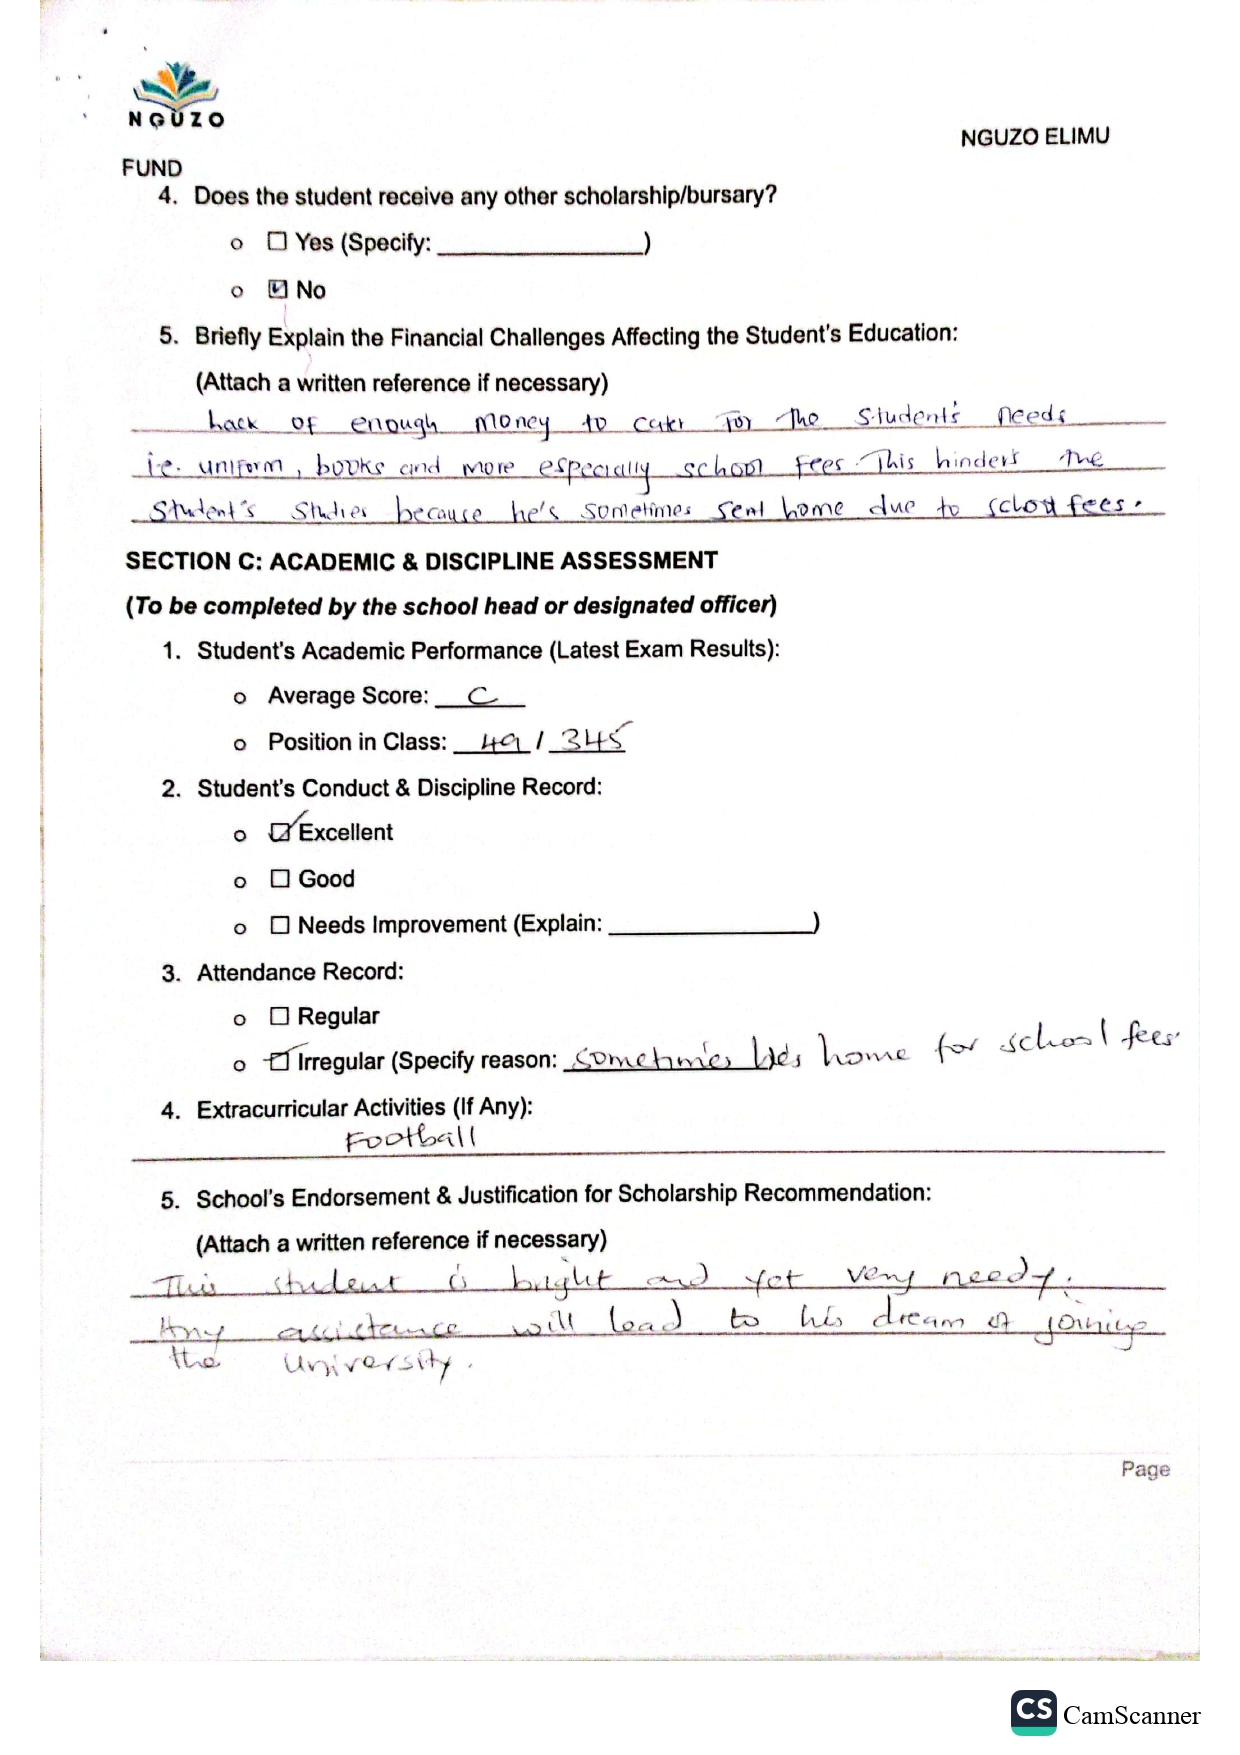 NGUZO
NGUZO ELIMU
FUND
4. Does the student receive any other scholarship/bursary?
o ☐ Yes (Specify: ______________)
o ☑ No
5. Briefly Explain the Financial Challenges Affecting the Student's Education:
(Attach a written reference if necessary)
Lack of enough money to cater for the student's needs
i.e. uniform, books and more especially school fees. This hinders the
student's studies because he's sometimes sent home due to school fees.
SECTION C: ACADEMIC & DISCIPLINE ASSESSMENT
(To be completed by the school head or designated officer)
1. Student's Academic Performance (Latest Exam Results):
o Average Score: C
o Position in Class: 49 / 345
2. Student's Conduct & Discipline Record:
o ☑ Excellent
o ☐ Good
o ☐ Needs Improvement (Explain: ______________)
3. Attendance Record:
o ☐ Regular
o ☑ Irregular (Specify reason: sometimes home for school fees.
4. Extracurricular Activities (If Any):
Football
5. School's Endorsement & Justification for Scholarship Recommendation:
(Attach a written reference if necessary)
This student is bright and yet very needy.
Any assistance will lead to his dream of joining
the university.
Page
CS CamScanner